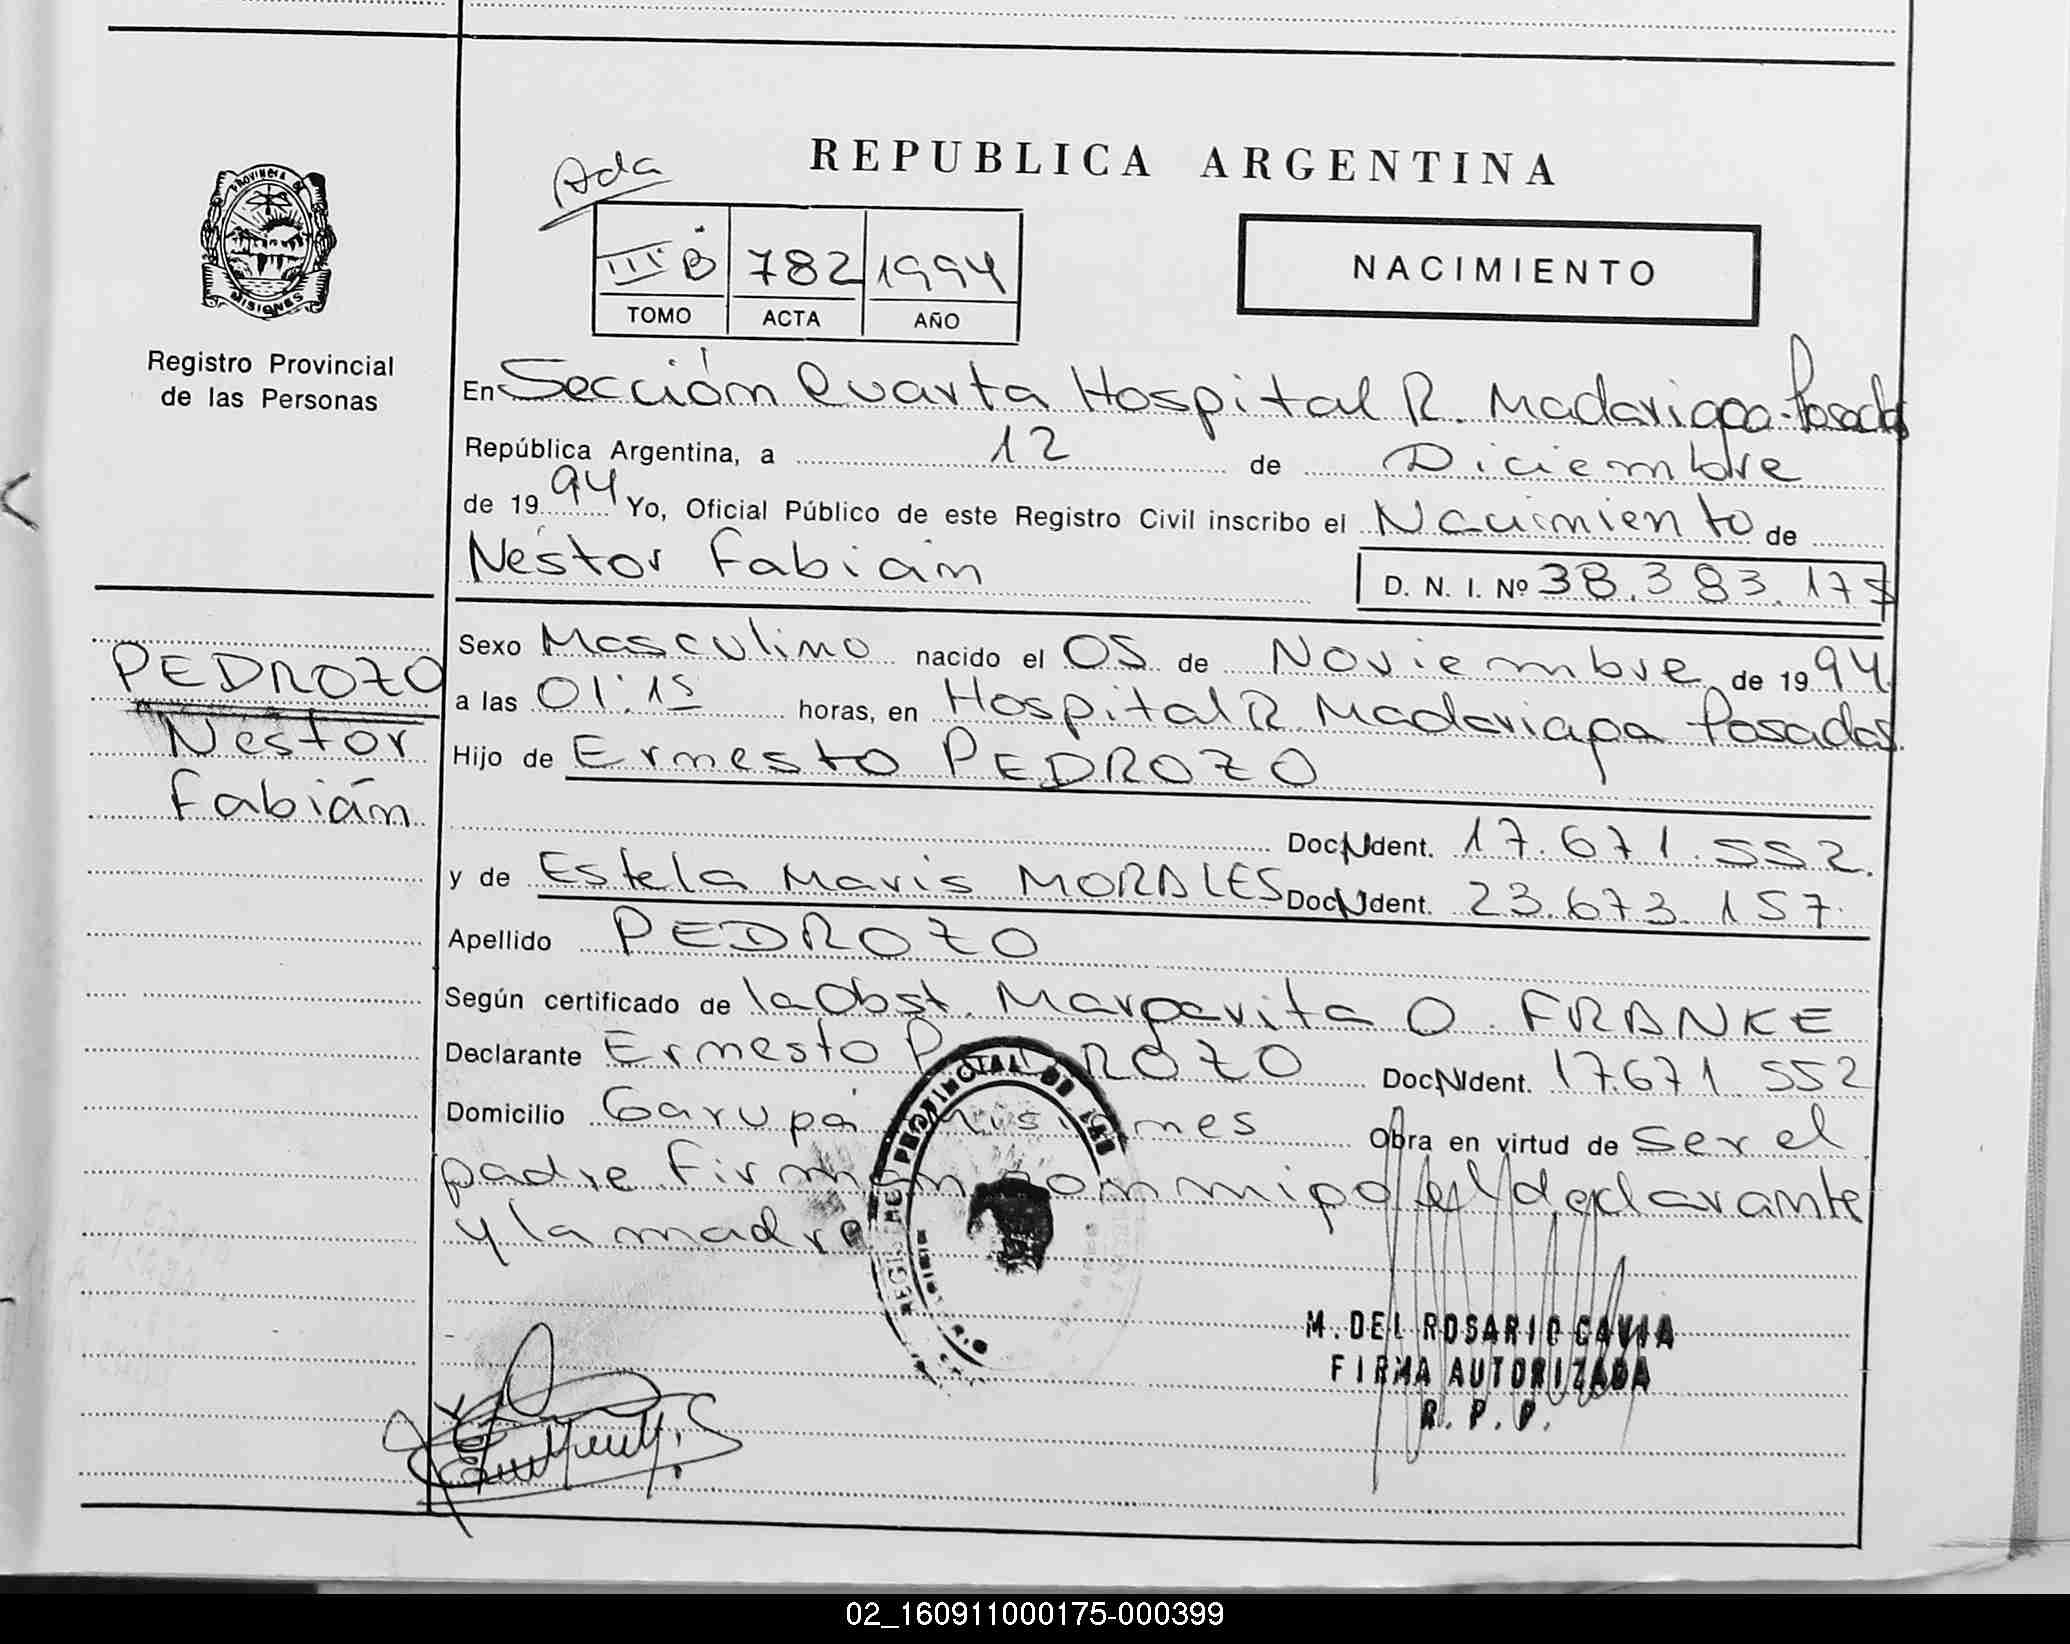 REPUBLICA ARGENTINA
Ada
III B 782 1994
TOMO ACTA AÑO
NACIMIENTO
PROVINCIA DE
MISIONES
Registro Provincial
de las Personas
En Sección Cuarta Hospital R. Madariaga - Posadas
República Argentina, a 12 de Diciembre
de 1994 Yo, Oficial Público de este Registro Civil inscribo el Nacimiento de
Néstor Fabián D. N. I. Nº 38.383.17
PEDROZO
Néstor
Fabián
Sexo Masculino nacido el 05 de Noviembre de 1994
a las 01:15 horas, en Hospital R. Madariaga Posadas
Hijo de Ernesto PEDROZO
Doc N Ident. 17.671.552.
y de Estela Maris MORALES Doc N Ident. 23.673.157.
Apellido PEDROZO
Según certificado de la Obst. Margarita O. FRANKE
Declarante Ernesto PEDROZO Doc N Ident. 17.671.552
Domicilio Garupá Misiones Obra en virtud de ser el
padre firman conmigo el declarante
y la madre
PROVINCIAL DE LAS
M. DEL ROSARIO GAVIA
FIRMA AUTORIZADA
R. P. P.
02_160911000175-000399